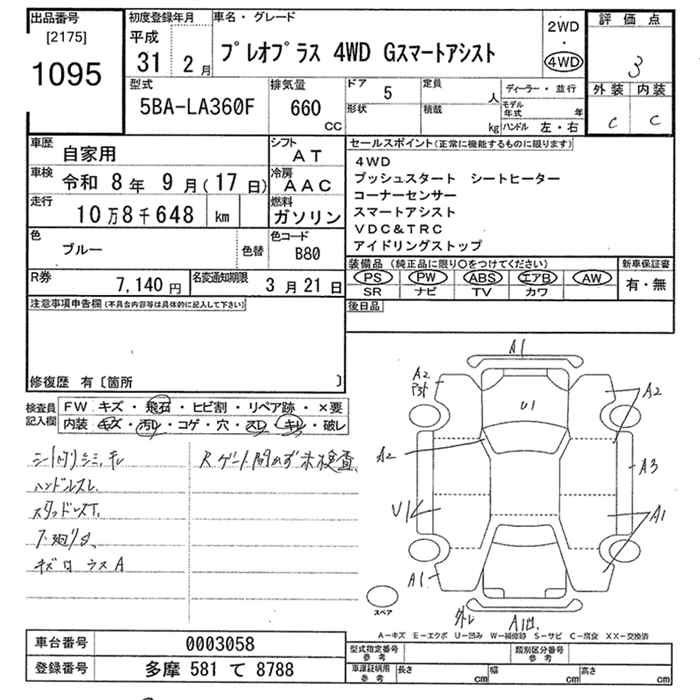 出品番号
[2175]
1095
初度登録年月
平成
31 2月
車名・グレード
プレオプラス 4WD Gスマートアシスト
2WD
・
4WD
評価点
3
外装 内装
C C
型式
5BA-LA360F
排気量
660
CC
ドア 5
形状
定員
人
積載
kg
ディーラー・並行
モデル年式 年
ハンドル 左・右
車歴
自家用
シフト
AT
車検
令和 8年 9月(17日)
冷房
AAC
走行
10万8千648 km
燃料
ガソリン
色
ブルー
色替
色コード
B80
R券
7,140円
名変通知期限
3月21日
セールスポイント(正常に機能するものに限ります)
4WD
プッシュスタート シートヒーター
コーナーセンサー
スマートアシスト
VDC&TRC
アイドリングストップ
装備品(純正品に限り○をつけてください)
PS PW ABS エアB AW
SR ナビ TV カワ
新車保証書
有・無
後日品
注意事項申告欄(不具合内容等は具体的に記入して下さい)
修復歴 有〔箇所 〕
検査員記入欄
FW キズ・飛石・ヒビ割・リペア跡・×要
内装 キズ・汚れ・コゲ・穴・スレ・キレ・破レ
ハンドルスレ
Rゲート開かず未検査
A1
A2
U1
A2
A2
A3
U1
A1
A1
外レ
A1凹
スペア
A―キズ E―エクボ U―凹み W―補修跡 S―サビ C―腐食 XX―交換済
車台番号 0003058
登録番号 多摩 581 て 8788
型式指定番号
参考
類別区分番号
参考
車庫証明用
参考
長さ cm
幅 cm
高さ cm